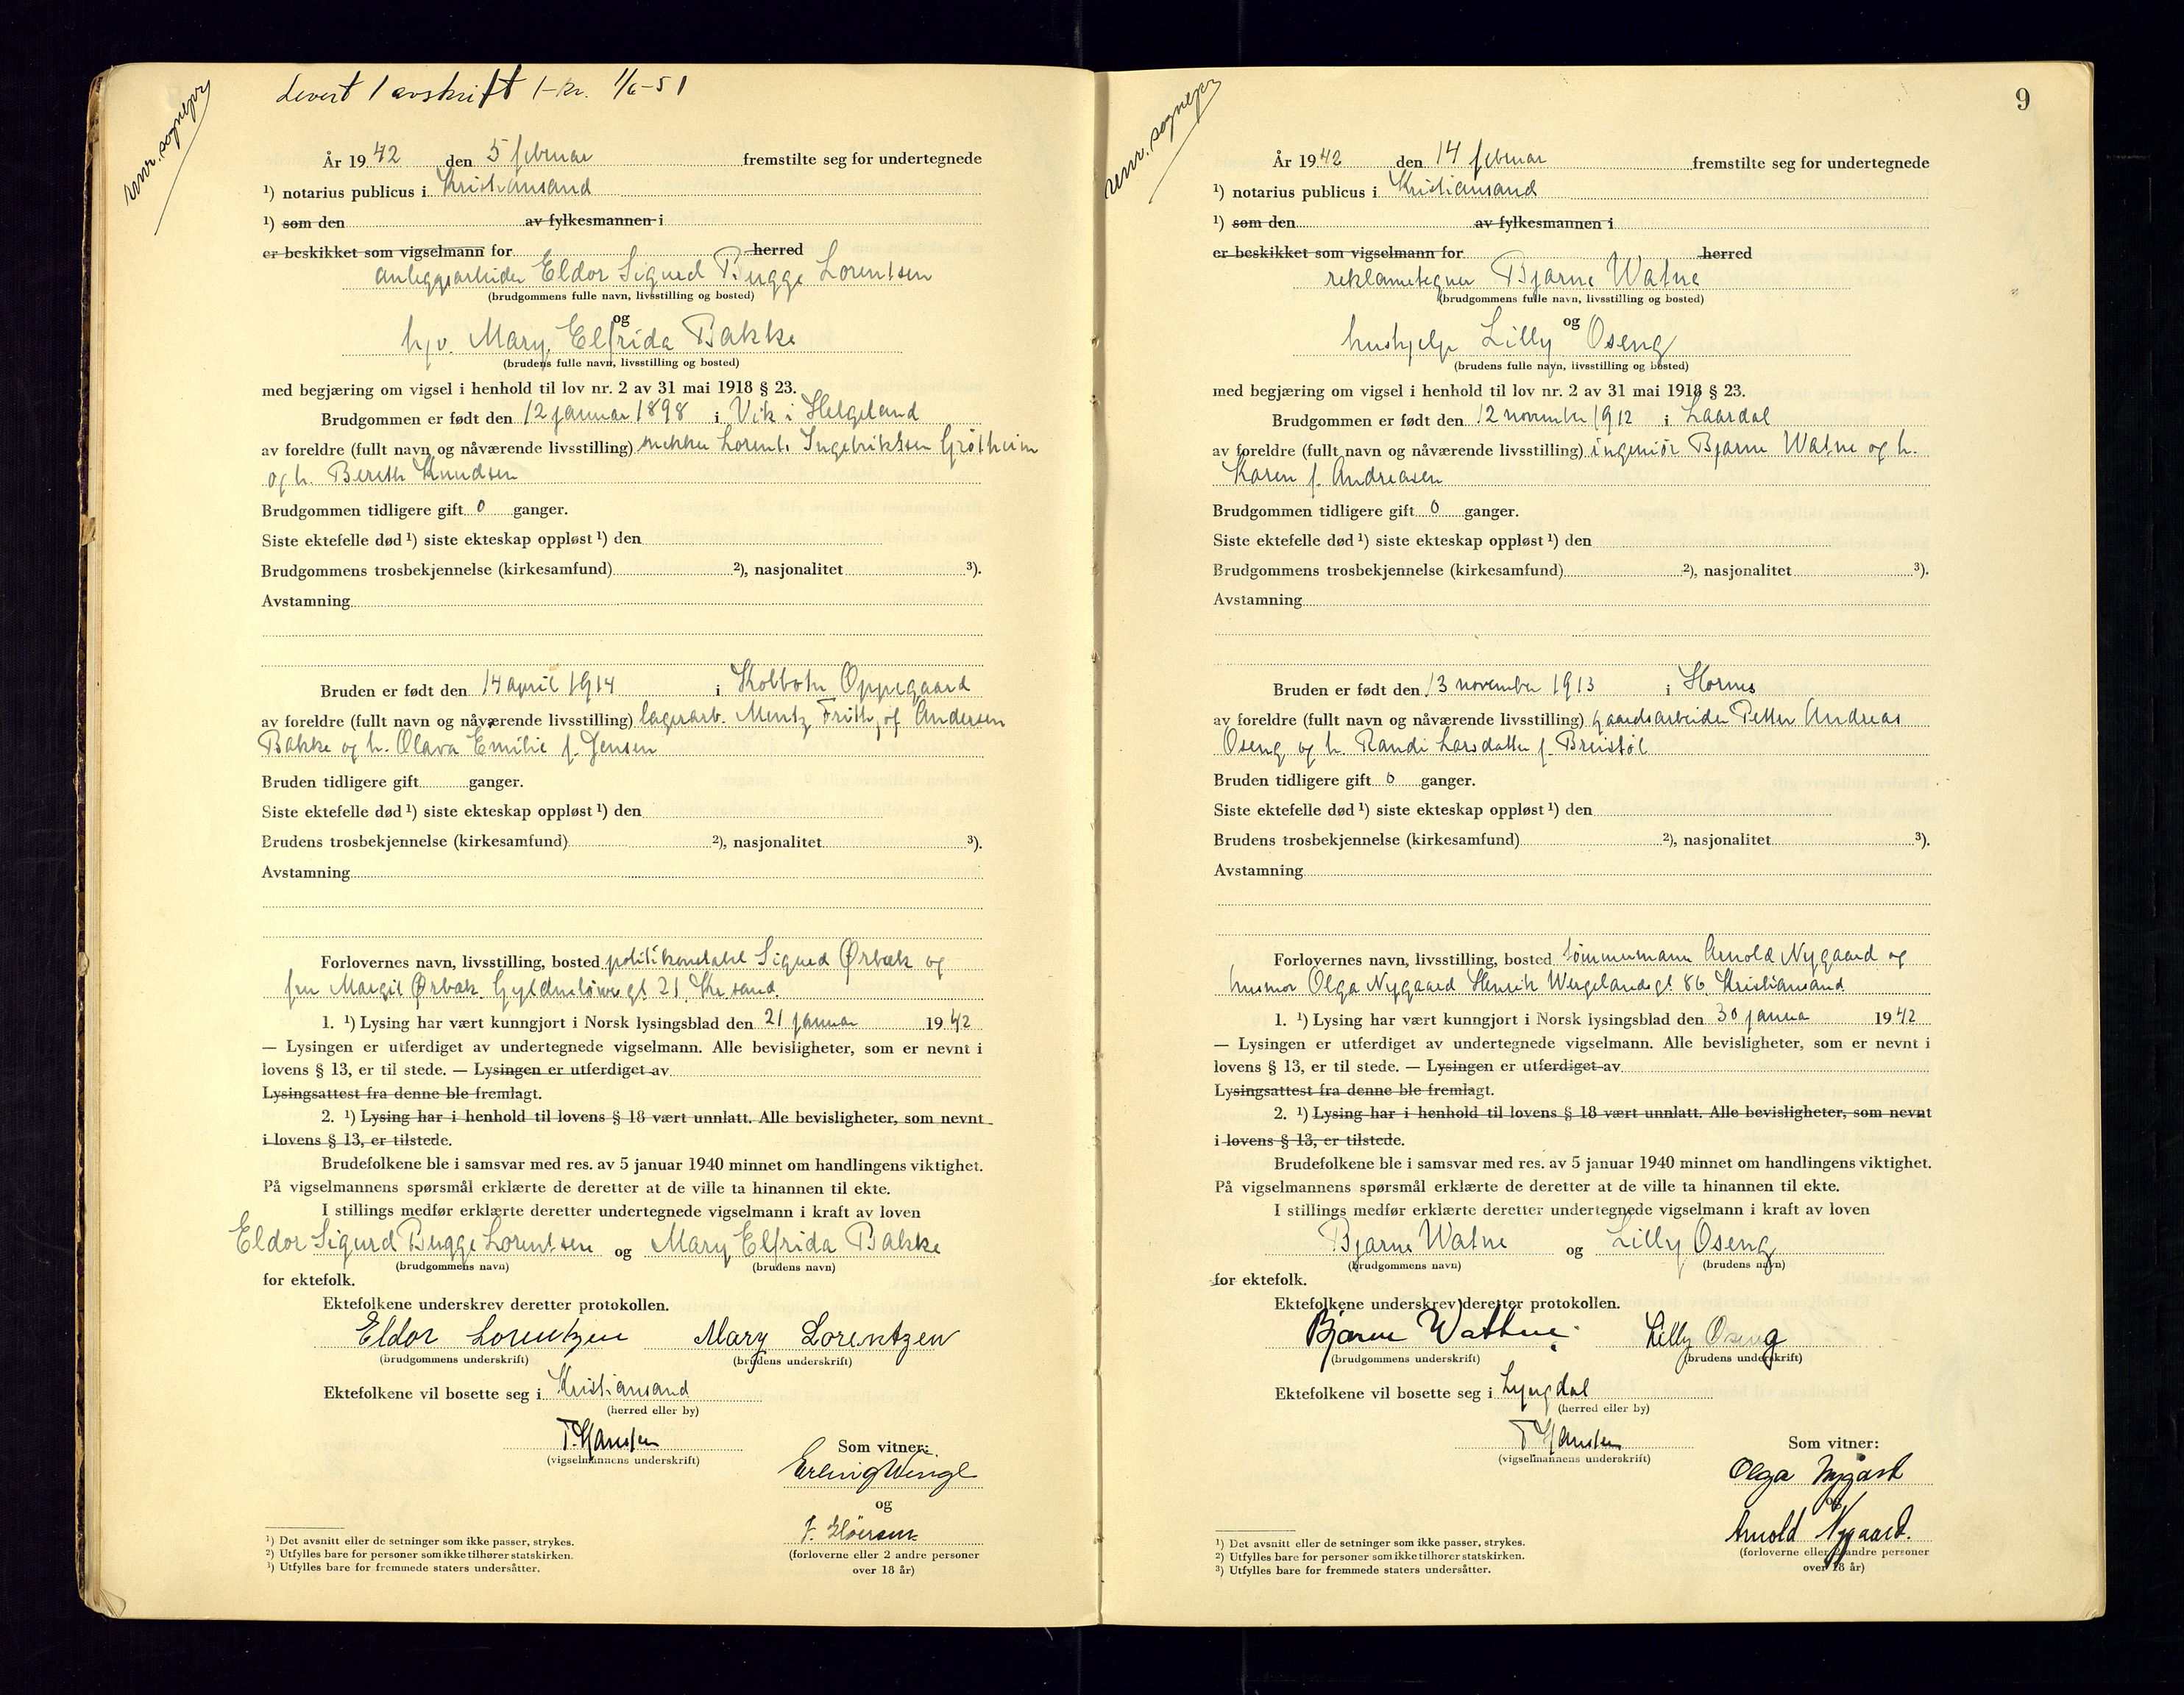 Levert 1 avskrift 1-kr. 1/6-51
År 1942 den 5 februar fremstilte seg for undertegnede
¹) notarius publicus i Kristiansand
¹) som den av fylkesmannen i
er beskikket som vigselmann for herred
anleggsarbeider Eldor Sigurd Bugge Lorentsen
(brudgommens fulle navn, livsstilling og bosted)
og
hjv. Mary Elfrida Bakke
(brudens fulle navn, livsstilling og bosted)
med begjæring om vigsel i henhold til lov nr. 2 av 31 mai 1918 § 23.
Brudgommen er født den 12 januar 1898 i Vik i Helgeland
av foreldre (fullt navn og nåværende livsstilling) snekker Lorents Ingebriktsen Grøtheim
og h. Bereth Knudsen
Brudgommen tidligere gift 0 ganger.
Siste ektefelle død ¹) siste ekteskap oppløst ¹) den
Brudgommens trosbekjennelse (kirkesamfund) ²), nasjonalitet ³).
Avstamning
Bruden er født den 14 april 1914 i Kolbotn Oppegaard
av foreldre (fullt navn og nåværende livsstilling) lagerarb. Mentz Frithjof Andersen
Bakke og h. Olava Emilie f. Jensen
Bruden tidligere gift ganger.
Siste ektefelle død ¹) siste ekteskap oppløst ¹) den
Brudens trosbekjennelse (kirkesamfund) ²), nasjonalitet ³).
Avstamning
Forlovernes navn, livsstilling, bosted politikonstabel Sigurd Ørbæk og
fru Margit Ørbæk Gyldenløves gt 21, Kr.sand.
1. ¹) Lysing har vært kunngjort i Norsk lysingsblad den 21 januar 1942
— Lysingen er utferdiget av undertegnede vigselmann. Alle bevisligheter, som er nevnt i
lovens § 13, er til stede. — Lysingen er utferdiget av
Lysingsattest fra denne ble fremlagt.
2. ¹) Lysing har i henhold til lovens § 18 vært unnlatt. Alle bevisligheter, som nevnt
i lovens § 13, er tilstede.
Brudefolkene ble i samsvar med res. av 5 januar 1940 minnet om handlingens viktighet.
På vigselmannens spørsmål erklærte de deretter at de ville ta hinannen til ekte.
I stillings medfør erklærte deretter undertegnede vigselmann i kraft av loven
Eldor Sigurd Bugge Lorentsen og Mary Elfrida Bakke
(brudgommens navn) (brudens navn)
for ektefolk.
Ektefolkene underskrev deretter protokollen.
Eldor Lorentzen Mary Lorentzen
(brudgommens underskrift) (brudens underskrift)
Ektefolkene vil bosette seg i Kristiansand
(herred eller by)
T. Hansen
(vigselmannens underskrift)
Som vitner:
Erling Wingl
og
(forloverne eller 2 andre personer
over 18 år)
¹) Det avsnitt eller de setninger som ikke passer, strykes.
²) Utfylles bare for personer som ikke tilhører statskirken.
³) Utfylles bare for fremmede staters undersåtter.
9
År 1942 den 14 februar fremstilte seg for undertegnede
¹) notarius publicus i Kristiansand
¹) som den av fylkesmannen i
er beskikket som vigselmann for herred
reklametegner Bjarne Watne
(brudgommens fulle navn, livsstilling og bosted)
og
hushjelp Lilly Oseng
(brudens fulle navn, livsstilling og bosted)
med begjæring om vigsel i henhold til lov nr. 2 av 31 mai 1918 § 23.
Brudgommen er født den 12 november 1912 i Laardal
av foreldre (fullt navn og nåværende livsstilling) ingeniør Bjarne Watne og h.
Karen f. Andreasen
Brudgommen tidligere gift 0 ganger.
Siste ektefelle død ¹) siste ekteskap oppløst ¹) den
Brudgommens trosbekjennelse (kirkesamfund) ²), nasjonalitet ³).
Avstamning
Bruden er født den 13 november 1913 i Hornes
av foreldre (fullt navn og nåværende livsstilling) gaardsarbeider Petter Andreas
Oseng og h. Randi Larsdatter f. Breistøl
Bruden tidligere gift 0 ganger.
Siste ektefelle død ¹) siste ekteskap oppløst ¹) den
Brudens trosbekjennelse (kirkesamfund) ²), nasjonalitet ³).
Avstamning
Forlovernes navn, livsstilling, bosted tømmermann Arnold Nygaard og
husmor Olga Nygaard Henrik Wergelands gt. 86, Kristiansand
1. ¹) Lysing har vært kunngjort i Norsk lysingsblad den 30 janua 1942
— Lysingen er utferdiget av undertegnede vigselmann. Alle bevisligheter, som er nevnt i
lovens § 13, er til stede. — Lysingen er utferdiget av
Lysingsattest fra denne ble fremlagt.
2. ¹) Lysing har i henhold til lovens § 18 vært unnlatt. Alle bevisligheter, som nevnt
i lovens § 13, er tilstede.
Brudefolkene ble i samsvar med res. av 5 januar 1940 minnet om handlingens viktighet.
På vigselmannens spørsmål erklærte de deretter at de ville ta hinannen til ekte.
I stillings medfør erklærte deretter undertegnede vigselmann i kraft av loven
Bjarne Watne og Lilly Oseng
(brudgommens navn) (brudens navn)
for ektefolk.
Ektefolkene underskrev deretter protokollen.
Bjarne Wathne Lilly Oseng
(brudgommens underskrift) (brudens underskrift)
Ektefolkene vil bosette seg i Lyngdal
(herred eller by)
T Hansen
(vigselmannens underskrift)
Som vitner:
Olga Nygård
og
Arnold Nygaard.
(forloverne eller 2 andre personer
over 18 år)
¹) Det avsnitt eller de setninger som ikke passer, strykes.
²) Utfylles bare for personer som ikke tilhører statskirken.
³) Utfylles bare for fremmede staters undersåtter.